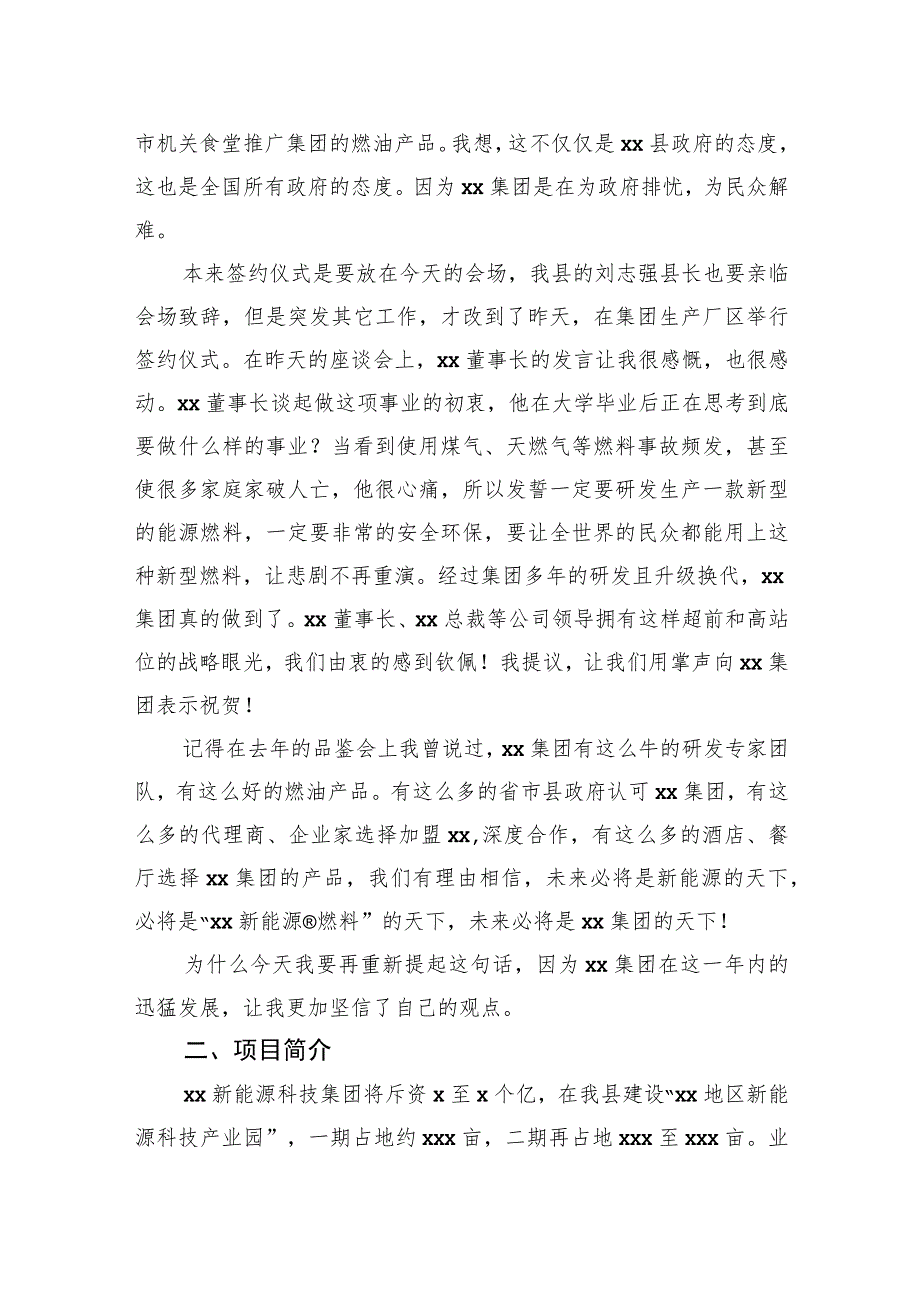 市机关食堂推广集团的燃油产品。我想，这不仅仅是 xx 县政府的态度，
这也是全国所有政府的态度。因为 xx 集团是在为政府排忧，为民众解
难。
本来签约仪式是要放在今天的会场，我县的刘志强县长也要亲临
会场致辞，但是突发其它工作，才改到了昨天，在集团生产厂区举行
签约仪式。在昨天的座谈会上，xx 董事长的发言让我很感慨，也很感
动。xx 董事长谈起做这项事业的初衷，他在大学毕业后正在思考到底
要做什么样的事业？当看到使用煤气、天燃气等燃料事故频发，甚至
使很多家庭家破人亡，他很心痛，所以发誓一定要研发生产一款新型
的能源燃料，一定要非常的安全环保，要让全世界的民众都能用上这
种新型燃料，让悲剧不再重演。经过集团多年的研发且升级换代，xx
集团真的做到了。xx 董事长、xx 总裁等公司领导拥有这样超前和高站
位的战略眼光，我们由衷的感到钦佩！我提议，让我们用掌声向 xx 集
团表示祝贺！
记得在去年的品鉴会上我曾说过，xx 集团有这么牛的研发专家团
队，有这么好的燃油产品。有这么多的省市县政府认可 xx 集团，有这
么多的代理商、企业家选择加盟 xx,深度合作，有这么多的酒店、餐
厅选择 xx 集团的产品，我们有理由相信，未来必将是新能源的天下，
必将是“xx 新能源®燃料”的天下，未来必将是 xx 集团的天下！
为什么今天我要再重新提起这句话，因为 xx 集团在这一年内的
迅猛发展，让我更加坚信了自己的观点。
二、项目简介
xx 新能源科技集团将斥资 x 至 x 个亿，在我县建设“xx 地区新能
源科技产业园”，一期占地约 xxx 亩，二期再占地 xxx 至 xxx 亩。业